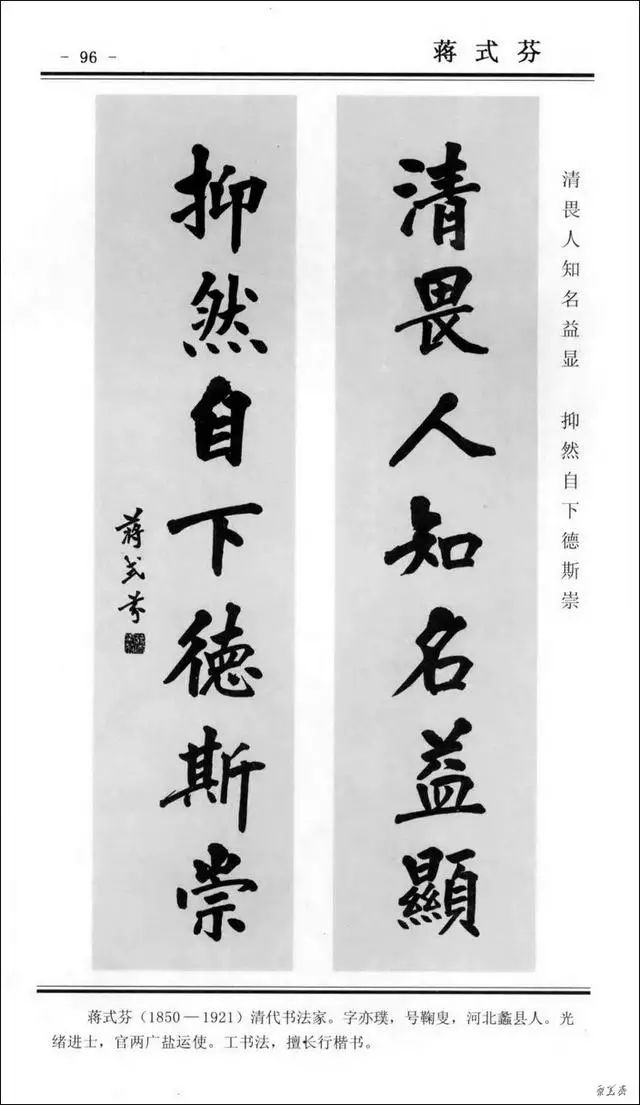 - 96 -
蒋式芬
清畏人知名益显 抑然自下德斯崇
清畏人知名益顯
抑然自下徳斯崇
蒋式芬
蒋式芬（1850—1921）清代书法家。字亦璞，号鞠叟，河北蠡县人。光
绪进士，官两广盐运使。工书法，擅长行楷书。